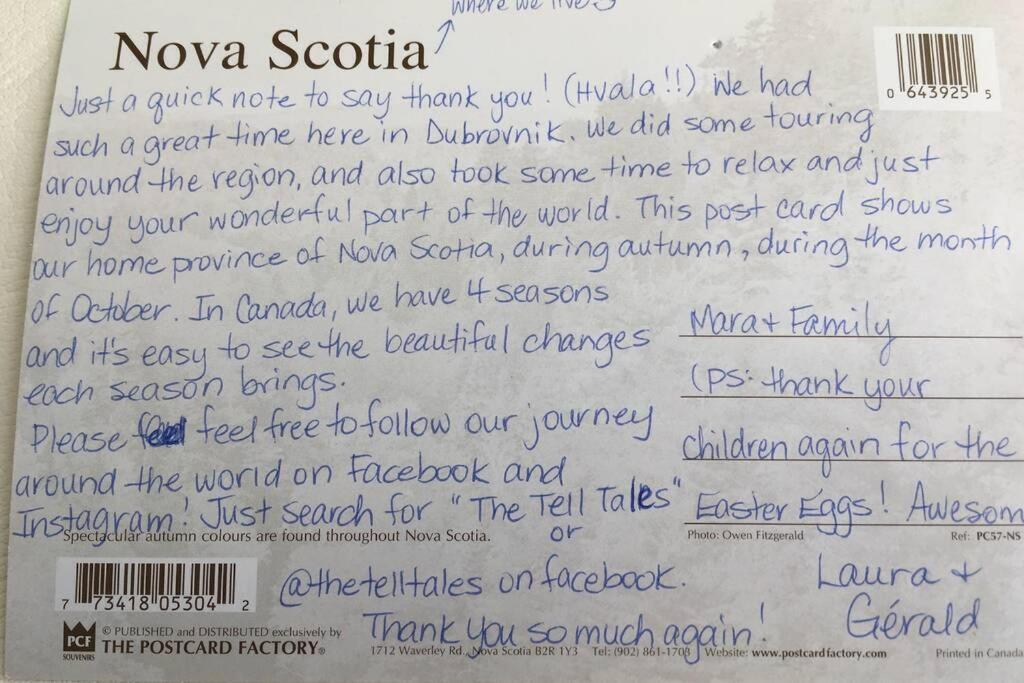 where we live
Nova Scotia
0 643925 5
Just a quick note to say thank you! (Hvala!!) We had
such a great time here in Dubrovnik. We did some touring
around the region, and also took some time to relax and just
enjoy your wonderful part of the world. This post card shows
our home province of Nova Scotia, during autumn, during the month
of October. In Canada, we have 4 seasons
and it's easy to see the beautiful changes
each season brings.
Please feel free to follow our journey
around the world on Facebook and
Instagram! Just search for "The Tell Tales"
or
@thetelltales on facebook.
Thank you so much again!
Mara + Family
(PS: thank your
children again for the
Easter Eggs! Awesom
Laura +
Gérald
Spectacular autumn colours are found throughout Nova Scotia.
Photo: Owen Fitzgerald
Ref: PC57-NS
7 73418 05304 2
PCF
SOUVENIRS
© PUBLISHED and DISTRIBUTED exclusively by
THE POSTCARD FACTORY®
1712 Waverley Rd., Nova Scotia B2R 1Y3 Tel: (902) 861-1703 Website: www.postcardfactory.com Printed in Canada